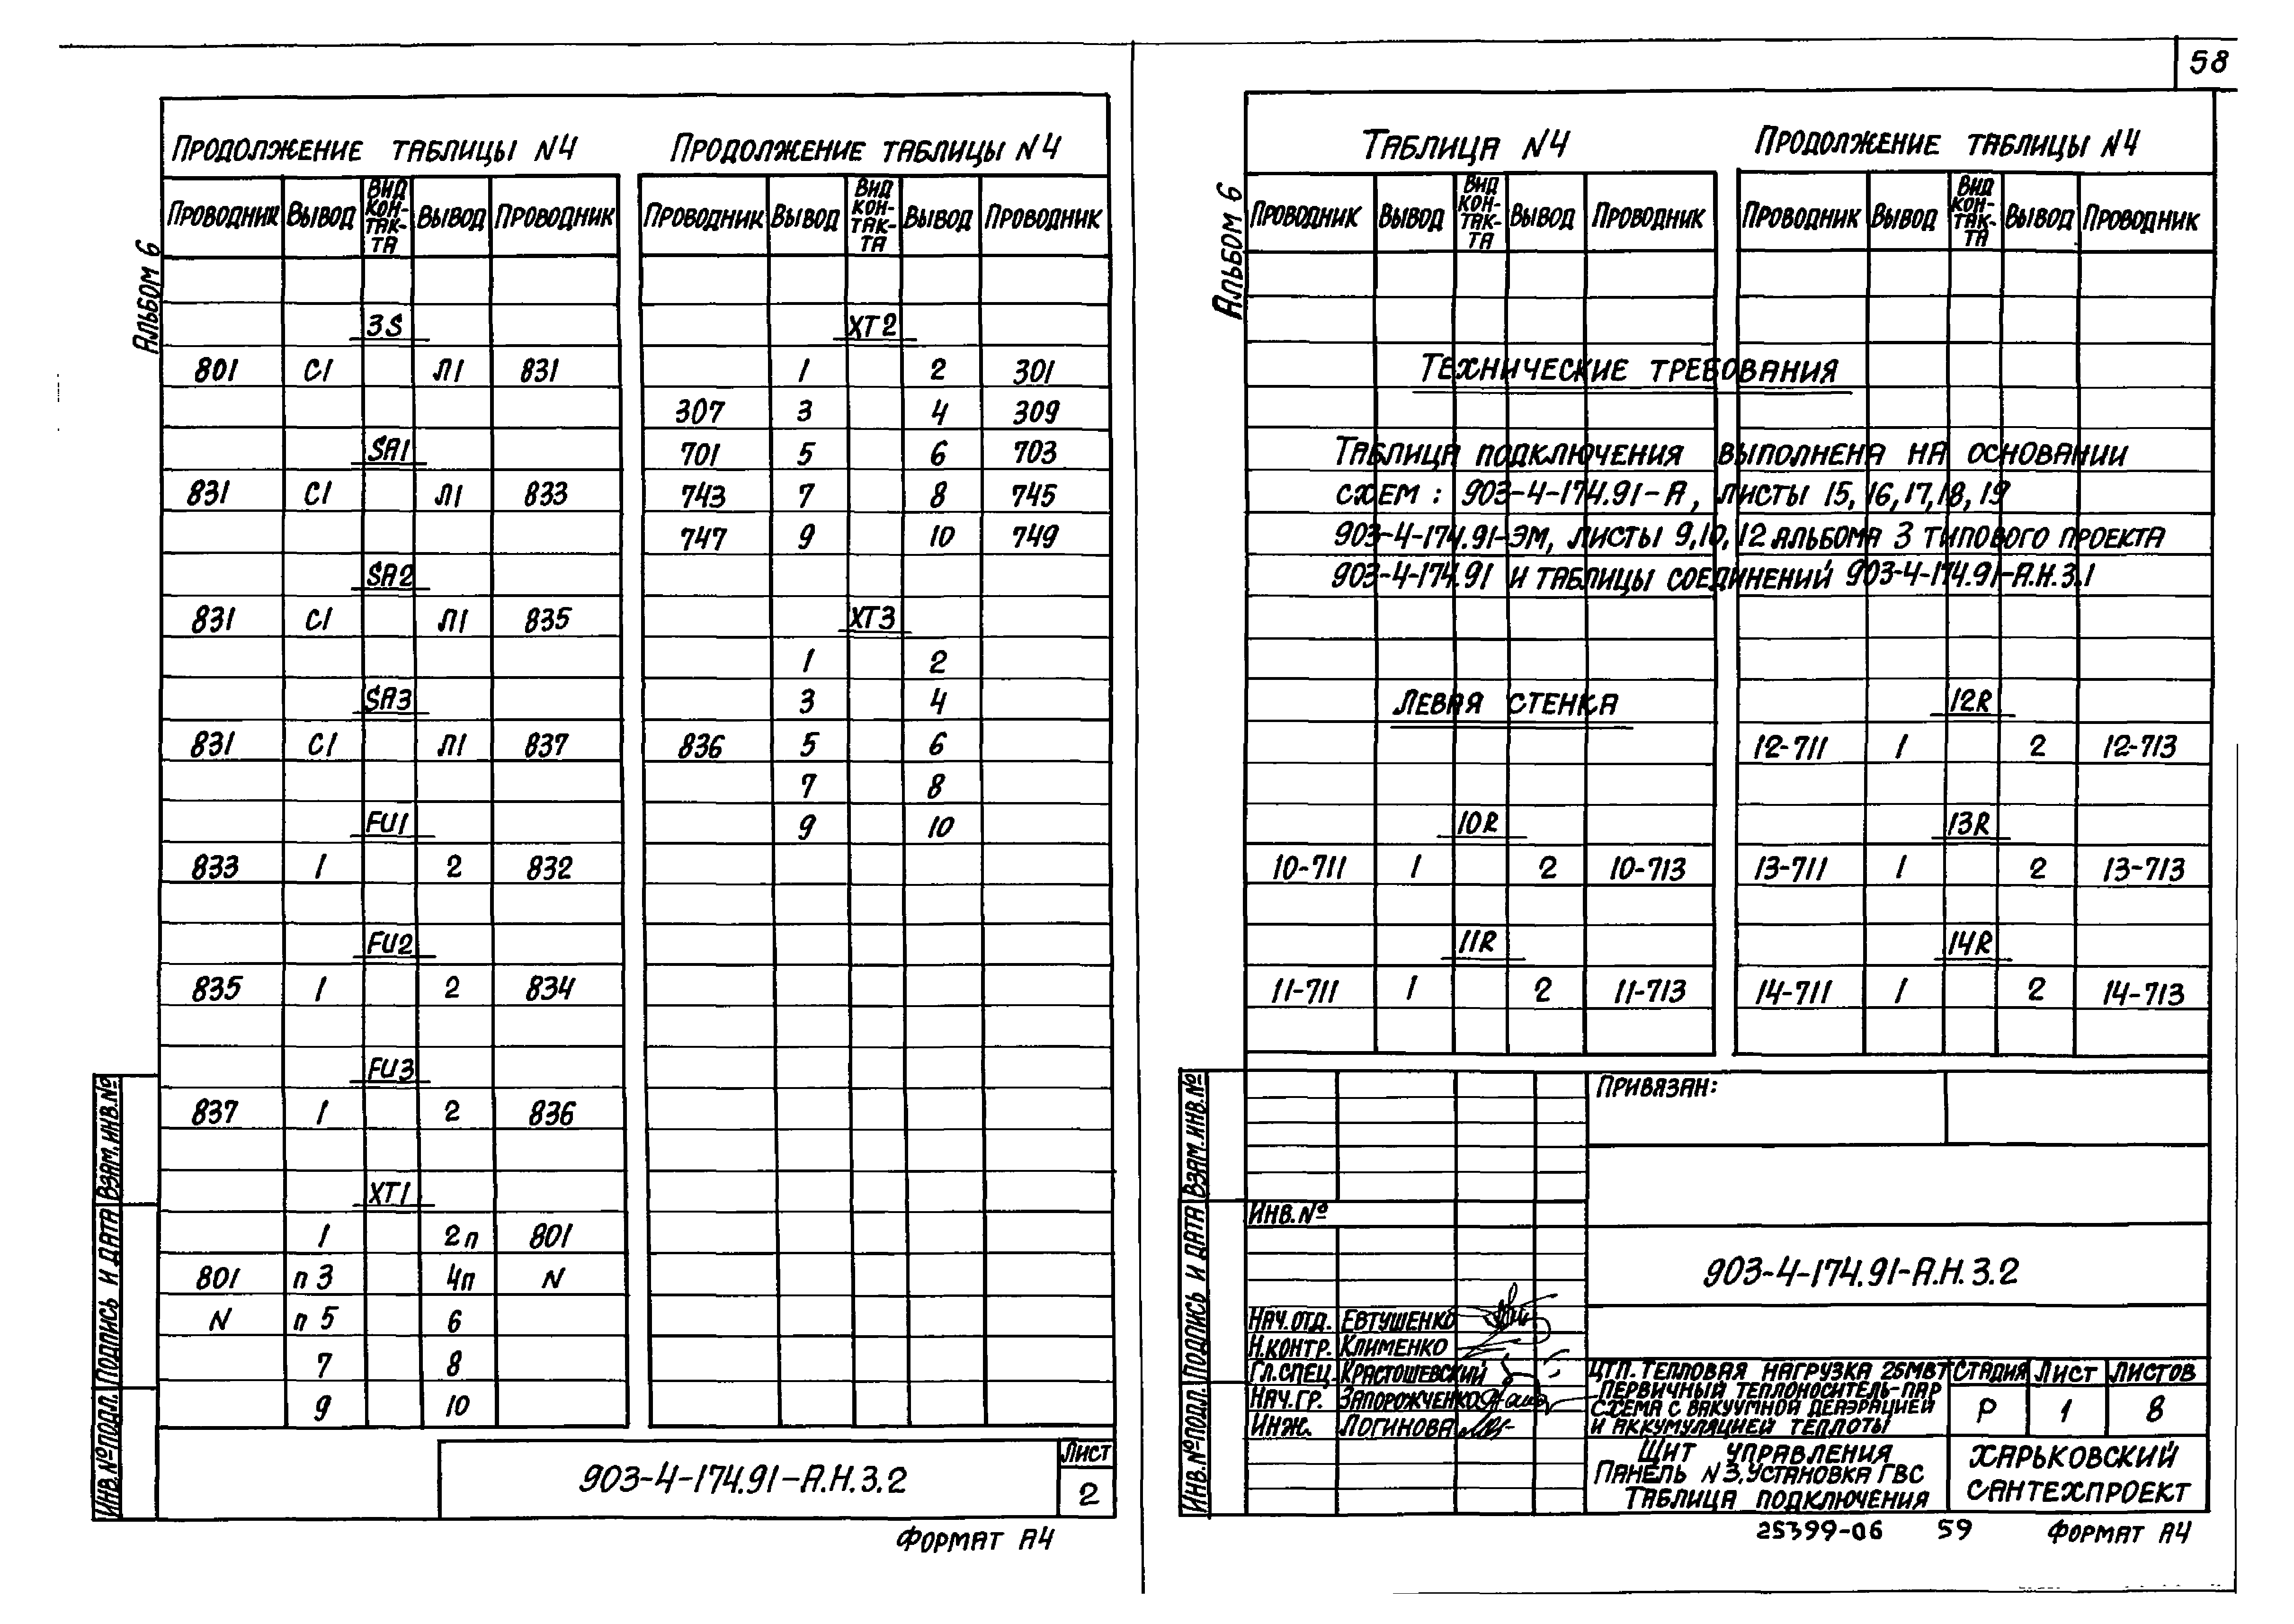 58
Альбом 6
Продолжение таблицы N4
Проводник Вывод Вид контакта Вывод Проводник
3S
801 С1 Л1 831
SA1
831 С1 Л1 833
SA2
831 С1 Л1 835
SA3
831 С1 Л1 837
FU1
833 1 2 832
FU2
835 1 2 834
FU3
837 1 2 836
XT1
1 2п 801
801 п3 4п N
N п5 6
7 8
9 10
Продолжение таблицы N4
Проводник Вывод Вид контакта Вывод Проводник
XT2
1 2 301
307 3 4 309
701 5 6 703
743 7 8 745
747 9 10 749
XT3
1 2
3 4
836 5 6
7 8
9 10
Взам. инв. №
Подпись и дата
Инв. № подл.
903-4-174.91-А.Н.3.2
Лист
2
Формат А4
Альбом 6
Таблица N4
Проводник Вывод Вид контакта Вывод Проводник
Продолжение таблицы N4
Проводник Вывод Вид контакта Вывод Проводник
Технические требования
Таблица подключения выполнена на основании
схем: 903-4-174.91-А, листы 15, 16, 17, 18, 19
903-4-174.91-ЭМ, листы 9, 10, 12 альбома 3 типового проекта
903-4-174.91 и таблицы соединений 903-4-174.91-А.Н.3.1
Левая стенка
10R
10-711 1 2 10-713
11R
11-711 1 2 11-713
12R
12-711 1 2 12-713
13R
13-711 1 2 13-713
14R
14-711 1 2 14-713
Взам. инв. №
Подпись и дата
Инв. № подл.
Привязан:
Инв. №
903-4-174.91-А.Н.3.2
Нач. отд. Евтушенко
Н.контр. Клименко
Гл. спец. Крастошевский
Нач. гр. Запорожченко
Инж. Логинова
ЦТП. Тепловая нагрузка 25МВт
Первичный теплоноситель-пар
Схема с вакуумной деаэрацией
и аккумуляцией теплоты
Стадия Лист Листов
Р 1 8
Щит управления
Панель N3, установка ГВС
Таблица подключения
Харьковский
Сантехпроект
25399-06 59 Формат А4